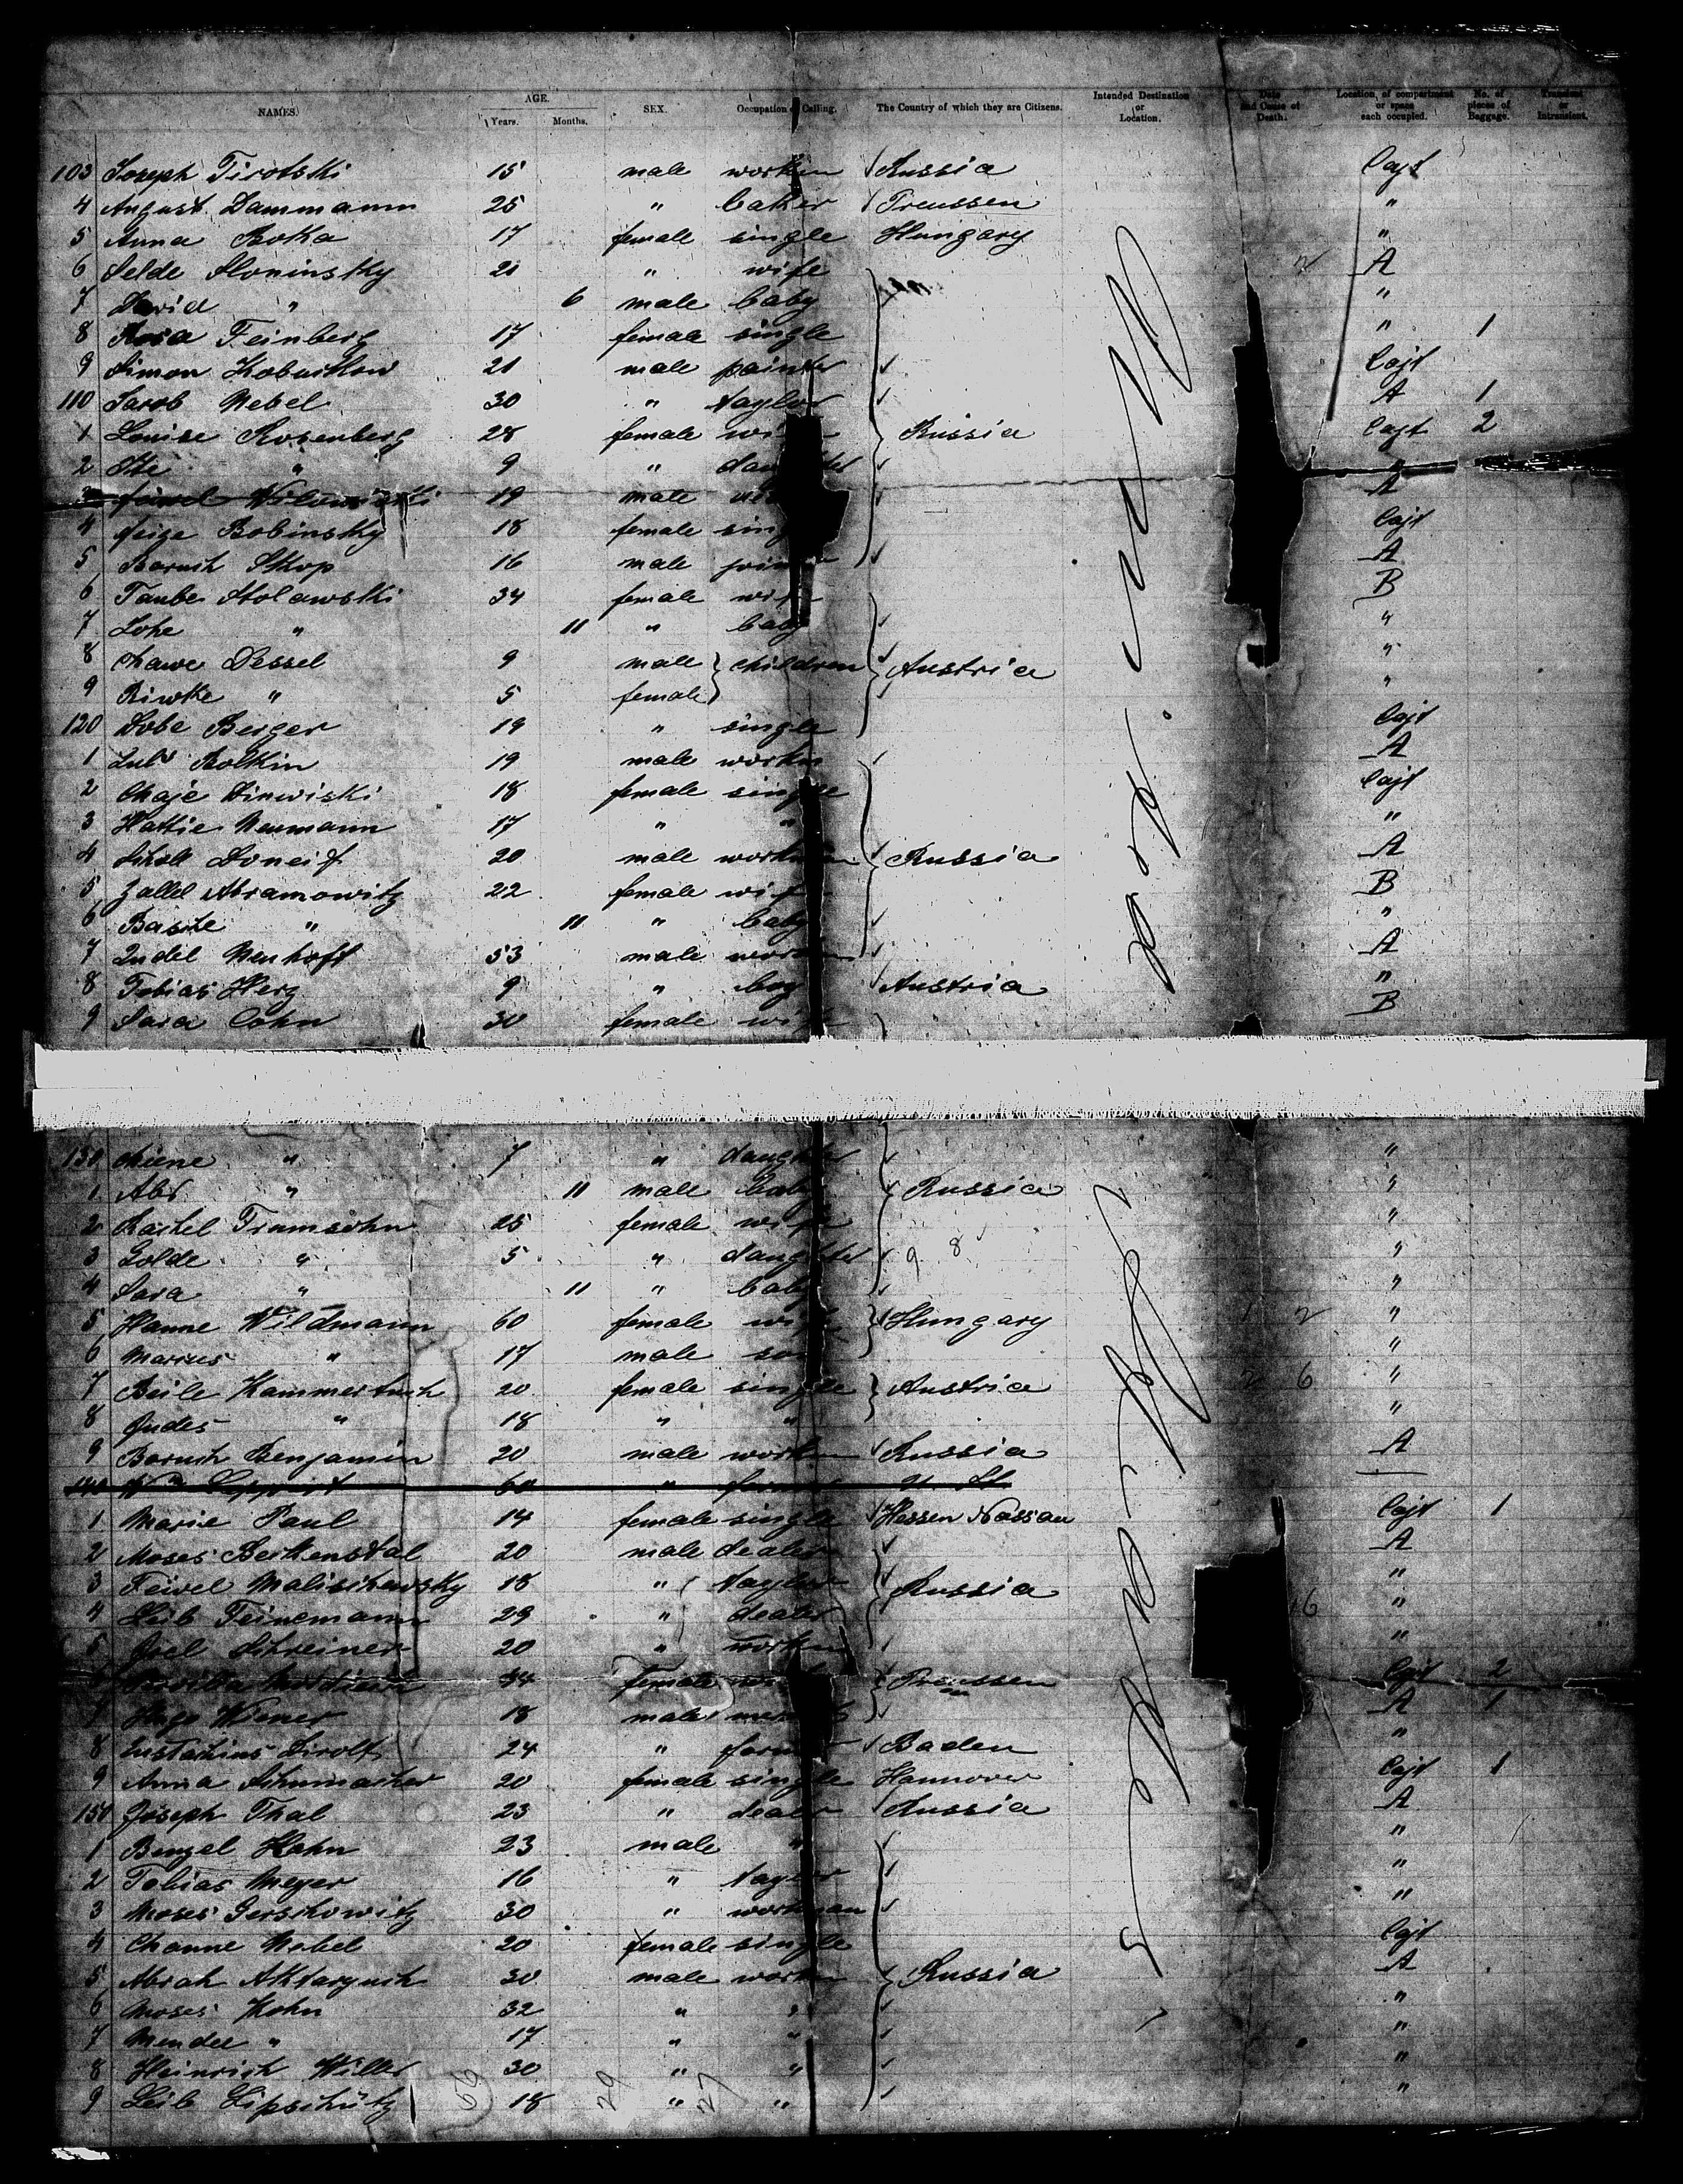 NAMES. AGE. Years. Months. SEX. Occupation or Calling. The Country of which they are Citizens. Intended Destination or Location. Date and Cause of Death. Location of compartment or space each occupied. No. of pieces of Baggage. Transient or Intransient.
103 Joseph Tirotski 15 male workm Russia Cajt
4 August Dammann 25 " baker Preussen "
5 Anna Boka 17 female single Hungary "
6 Selde Sloninsky 21 " wife A
7 David " 6 male baby "
8 Rosa Feinberg 17 female single " 1
9 Simon 21 male painter Cajt
110 Jacob Nebel 30 " taylor A 1
1 Louise Rosenberg 28 female wife Russia Cajt 2
2 Itte " 9 " daughter "
3 19 male A
4 Feige Bobinsky 18 female single Cajt
5 Baruch Skop 16 male joiner A
6 Taube Stolawski 34 female wife B
7 " 11 " baby "
8 Chawe Dessel 9 male children Austria "
9 Riwke " 5 female "
120 Dobe Berger 19 " single Cajt
1 Bolkin 19 male workm A
2 Chaje Diniwiski 18 female single Cajt
3 Hattie Neumann 17 " " "
4 20 male workm Russia A
5 Abramowitz 22 female wife B
6 Basche " 11 " baby "
7 Judel Neuhoff 53 male workm A
8 Tobias Herz 9 " boy Austria "
9 Sara Cohn 30 female wife B
130 " 7 " daughter "
1 Abr " 11 male baby Russia "
2 Rachel Frumsohn 25 female wife "
3 Golde " 5 " daughter 9 8 "
4 Sara " 11 " baby "
5 Hanne Wildmann 60 female wife Hungary 1 2 "
6 Marcus " 17 male son "
7 Beile Kammertuch 20 female single Austria 2 6 "
8 Judes " 18 " " "
9 Baruch Benjamin 20 male workm Russia A
140 60 " farmer U. St.
1 Marie Paul 14 female single Hessen Nassau Cajt 1
2 Moses Berkenstal 20 male dealer A
3 Feivel Malischewsky 18 " taylor Russia "
4 Leib Feinemann 29 " dealer 6 "
5 Joel Schreiner 20 " workm "
6 44 female Preussen Cajt 2
7 Hugo Wiener 18 male A 1
8 Eustachius Dirolf 24 " farmer Baden "
9 Anna Schumacher 20 female single Hannover Cajt 1
150 Joseph Thal 23 " dealer Russia A
1 Benzel Hahn 23 male " "
2 Tobias Meyer 16 " taylor "
3 Moses Gerschowitz 30 " workman "
4 Channe Nebel 20 female single Cajt
5 Abrah 30 male workm Russia A
6 Moses Kohn 32 " " "
7 Mendel " 17 " " "
8 Heinrich Willer 30 " " "
9 Leib Lipschütz 18 " " "
66 29 27